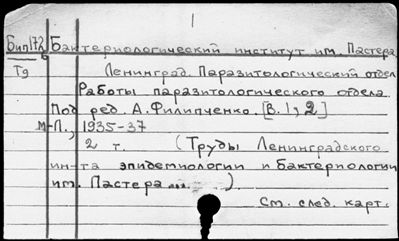 Бип172 Бактериологический институт им. Пастера.
Тд Ленинград. Паразитологический отдел
Работы паразитологического отдела.
Под ред. А. Филипченко. [В. 1, 2]
М-Л., 1935-37
2 т. (Труды Ленинградского
ин-та эпидемиологии и бактериологии
им. Пастера ... ).
См. след. карт.